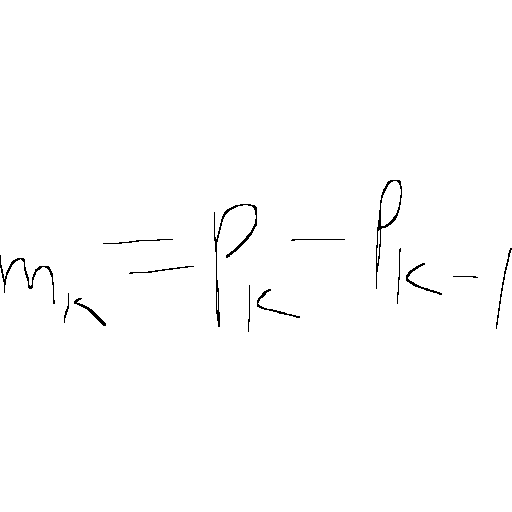 m_k = p_k - p_{k-1}